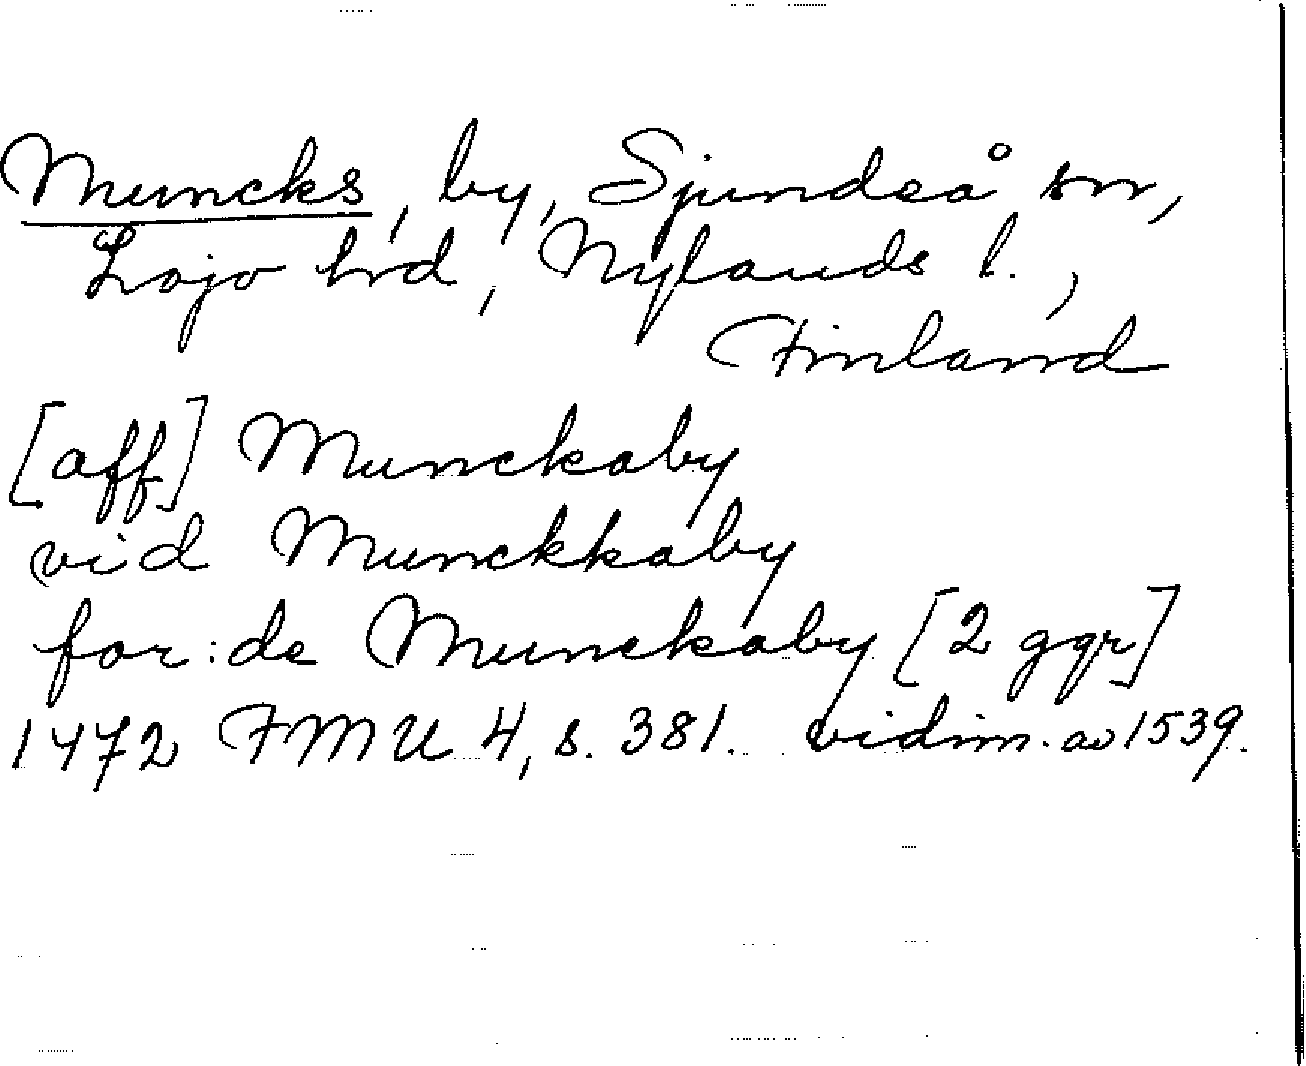 Muncks, by, Sjundeå sn,
Lojo hrd, Nylands l.,
Finland
[aff] Munckaby
vid Munckkaby
for:de Munckaby [2 ggr]
1472 FMU 4, s. 381. vidim. av 1539.